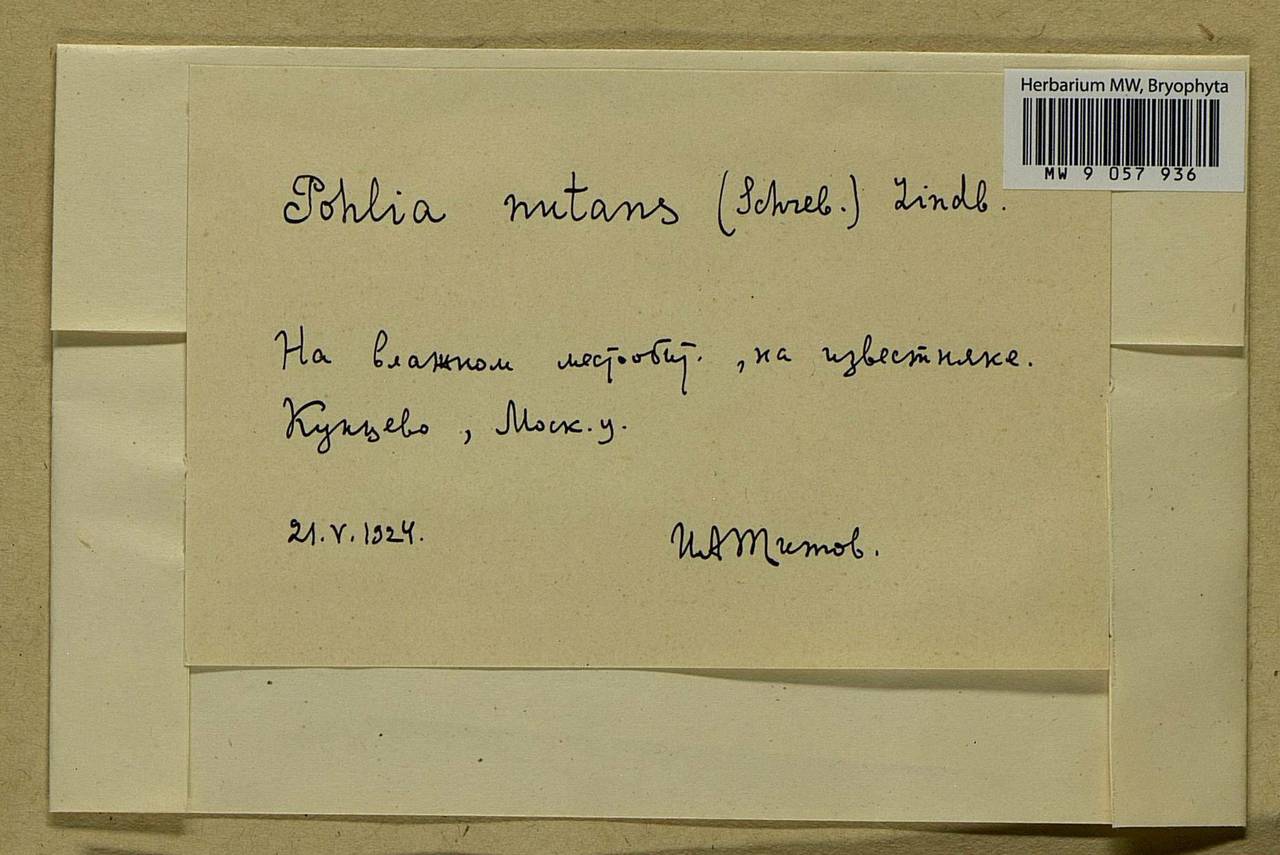 Herbarium MW, Bryophyta
MW 9 057 936
Pohlia nutans (Schreb.) Lindb.
На влажном местообит. , на известняке.
Кунцево , Моск. у.
21.V.1924.
И А Титов.